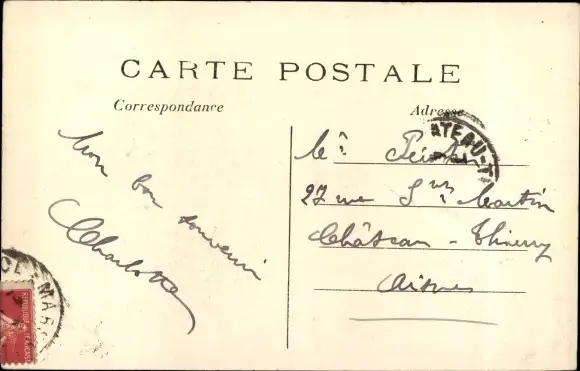 CARTE POSTALE
Correspondance
Adresse
Mon bon souvenir
Charlotte
27 rue St Martin
Château-Thierry
Aisne
ATEAU-T
MAR